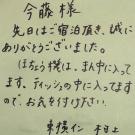 今藤様
先日はご宿泊頂き、誠に
ありがとうございました。
はちょう機は、まん中に入って
ます、ティッシュの中に入ってます
ので、お気を付け下さい。
東横イン 村上